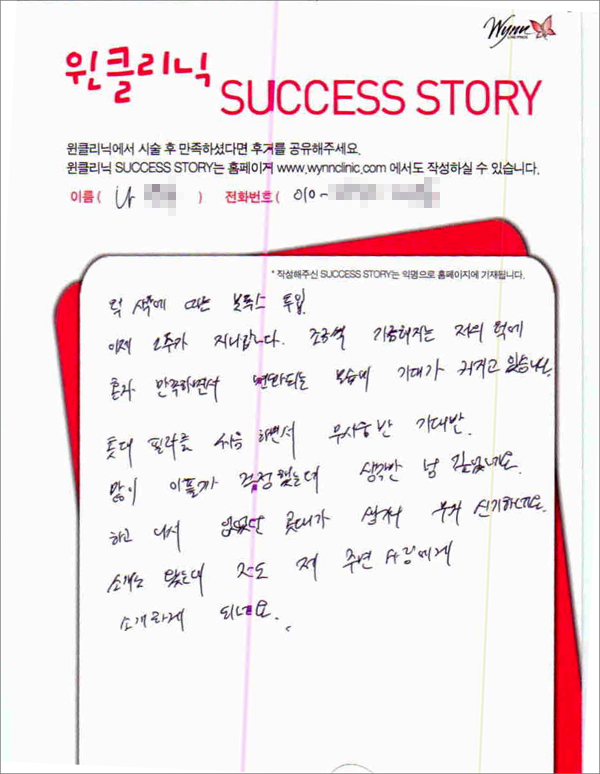 Wynn
윈클리닉
SUCCESS STORY
윈클리닉에서 시술 후 만족하셨다면 후기를 공유해주세요.
윈클리닉 SUCCESS STORY는 홈페이지 www.wynnclinic.com 에서도 작성하실 수 있습니다.
이름 ( 나 ) 전화번호 ( 010 -
* 작성해주신 SUCCESS STORY는 익명으로 홈페이지에 기재됩니다.
턱 보톡스 투입.
이제 2주가 지나갑니다. 조금씩 저의 턱에
혼자 만족하면서 변화되는 모습에 기대가 커지고 있습니다.
콧대 필러를 처음 하면서 무서움반 기대반.
많이 아플까 걱정했는데 생각반 넘
하고 나서 없었던 콧대가 살짝 신기하네요.
소개로 왔는데 저도 제 주변 사람에게
소개하게 되네요.